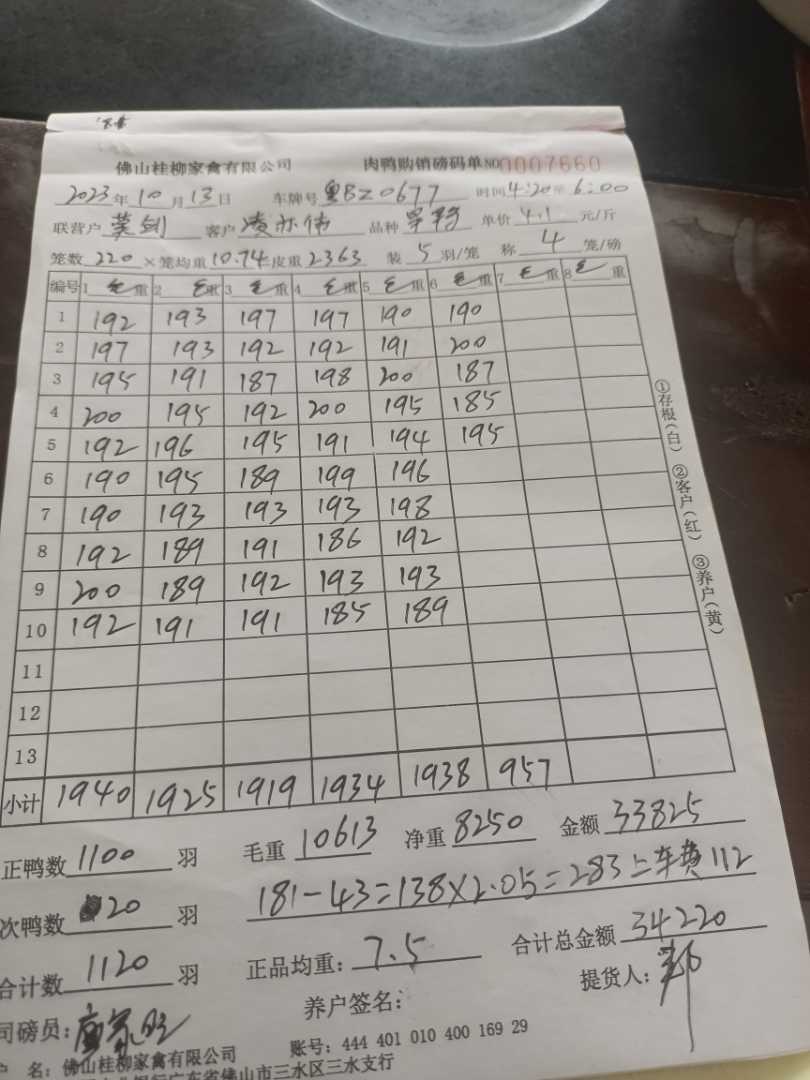 佛山桂柳家禽有限公司 肉鸭购销磅码单 NO 0007660
2023年10月13日 车牌号 粤BZ0677 时间4:20至6:00
联营户 客户 凌亦伟 品种 单价 4.1 元/斤
笼数 220 ×笼均重 10.74 皮重 2363 装 5 羽/笼 称 4 笼/磅
编号 1 毛重 2 毛重 3 毛重 4 毛重 5 毛重 6 毛重 7 毛重 8 毛重
1 192 193 197 197 190 190
2 197 193 192 192 191 200
3 195 191 187 198 200 187
4 200 195 192 200 195 185
5 192 196 195 191 194 195
6 190 195 189 199 196
7 190 193 193 193 198
8 192 189 191 186 192
9 200 189 192 193 193
10 192 191 191 185 189
11
12
13
小计 1940 1925 1919 1934 1938 957
①存根(白) ②客户(红) ③养户(黄)
正鸭数 1100 羽 毛重 10613 净重 8250 金额 33825
次鸭数 20 羽 181-43=138×2.05=283 上车费112
合计数 1120 羽 正品均重: 7.5 合计总金额 34220
司磅员: 养户签名: 提货人: 邓
户 名: 佛山桂柳家禽有限公司 账号: 444 401 010 400 169 29
广东省佛山市三水区三水支行